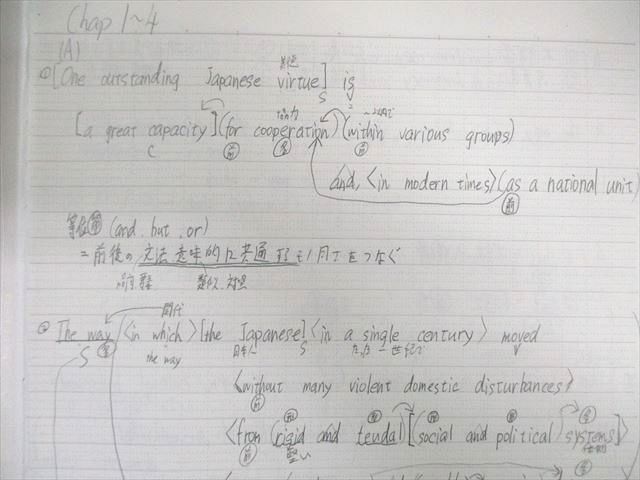 Chap 1~4
(A)
[One outstanding Japanese virtue] is
美徳
S V
[a great capacity](for cooperation)(within various groups)
C 前 名 前
協力
and, <in modern times>(as a national unit)
前
等位接 (and. but. or)
=前後の文法・意味的に共通するもの同士をつなぐ
品詞 類似・対照
関代
The way (<in which>[the Japanese]<in a single century> moved
S 名 the way 日本人 S たった一世紀で V
<without many violent domestic disturbances>
前
<from (rigid and feudal)[(social and political) systems]>
前 堅い 体制